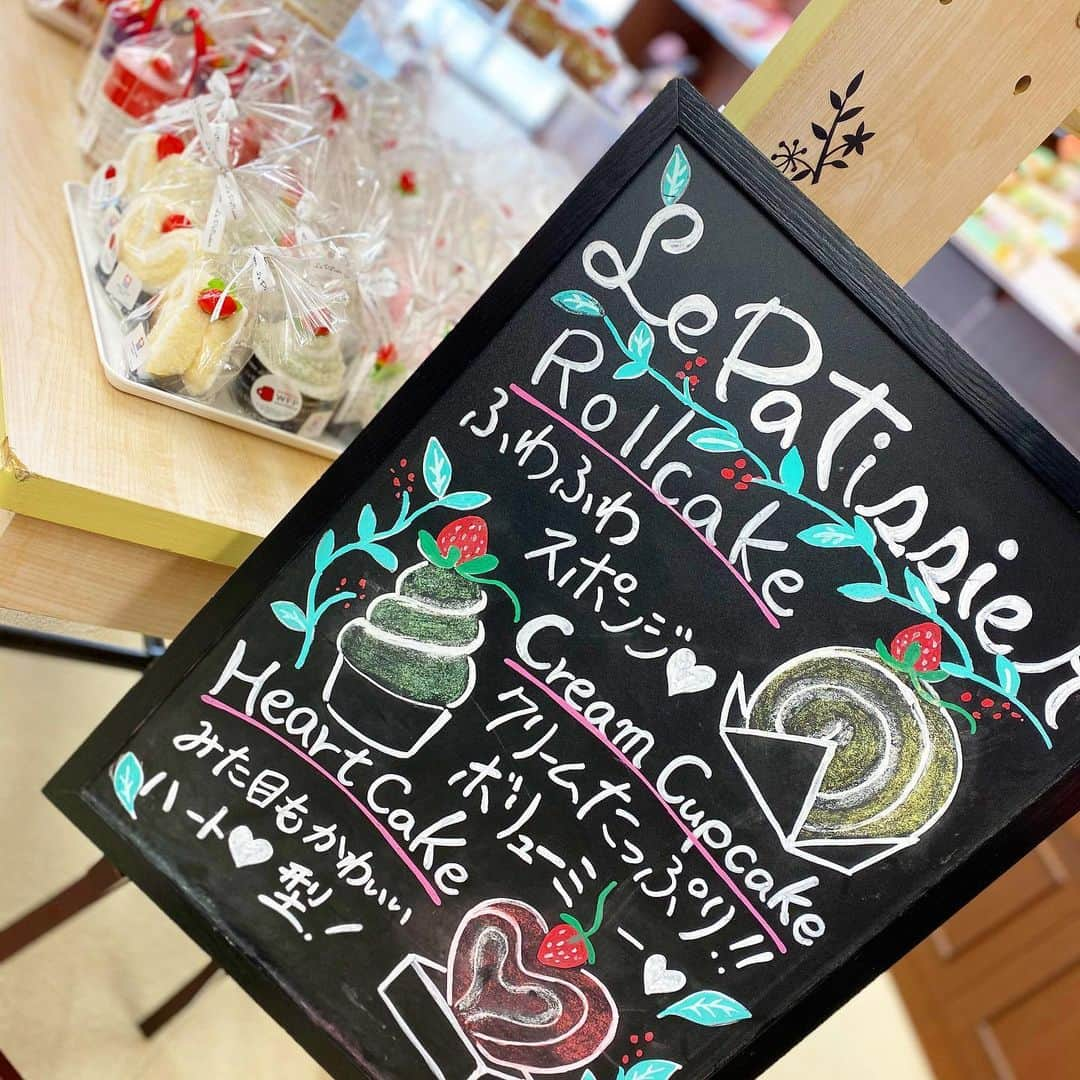 Le Patissier
Rollcake
ふわふわ
スポンジ♥
Cream Cupcake
クリームたっぷり!!
ボリューミー♥
Heart Cake
みた目もかわいい
ハート♥型!